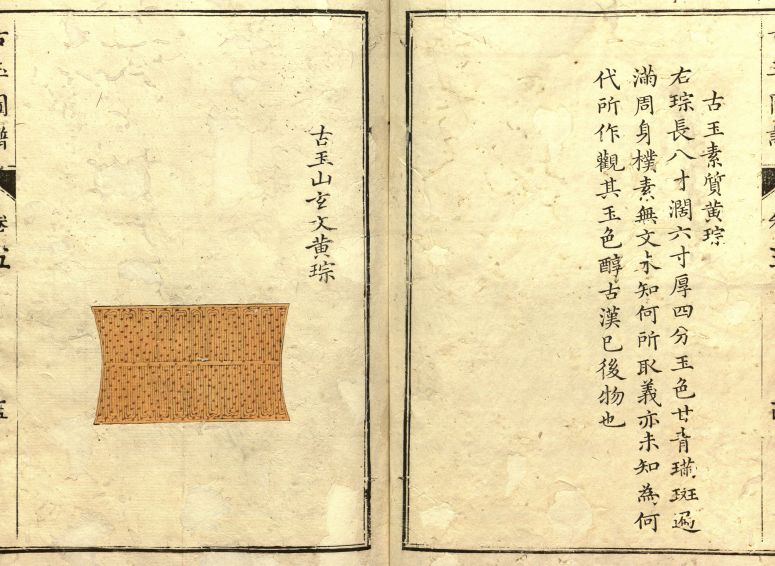 古玉素質黄琮
右琮長八寸濶六寸厚四分玉色甘青璊斑遍
滿周身樸素無文未知何所取義亦未知為何
代所作觀其玉色醇古漢已後物也
古玉山玄文黄琮
古玉圖譜
卷